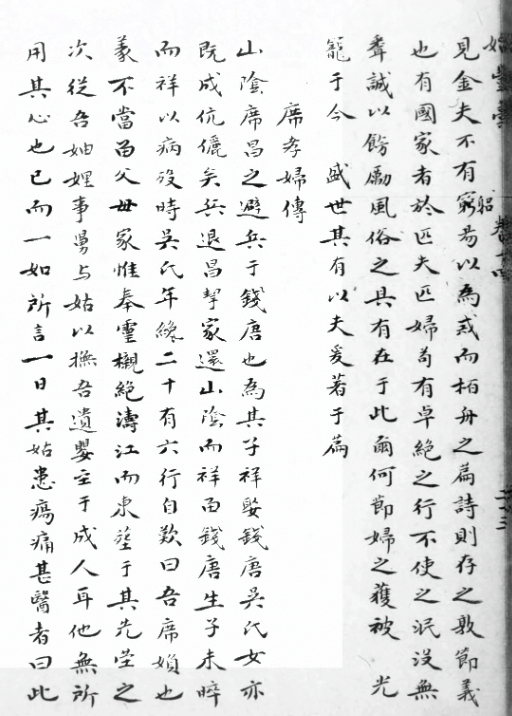 見金夫不有窮焉以為戒而栢舟之篇詩則存之敦節義
也有國家者於匹夫匹婦苟有卓絕之行不使之泯沒無
聞誠以餝勵風俗之具有在于此爾何節婦之獲被 光
寵于今 盛世其有以夫爰著于篇
席孝婦傳
山陰席昌之避兵于錢唐也為其子祥娶錢唐吳氏女亦
既成伉儷矣兵退昌挈家還山陰而祥留錢唐生子未晬
而祥以病歿時吳氏年纔二十有六行自歎曰吾席嬪也
義不當留父母家惟奉靈櫬絕濤江而東塟于其先塋之
次從吾妯娌事舅与姑以撫吾遺嬰至于成人耳他無所
用其心也已而一如所言一日其姑患瘍痛甚醫者曰此